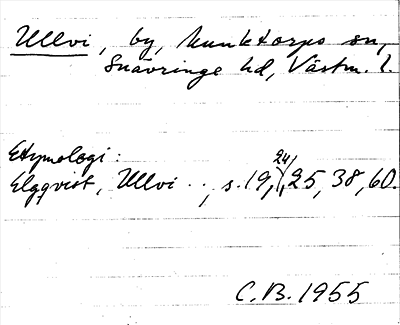 Ullvi, by, Munktorps sn,
Snävringe hd, Västm. l.
Etymologi:
Elgqvist, Ullvi . ., s. 19, 24, 25, 38, 60.
C.B. 1955